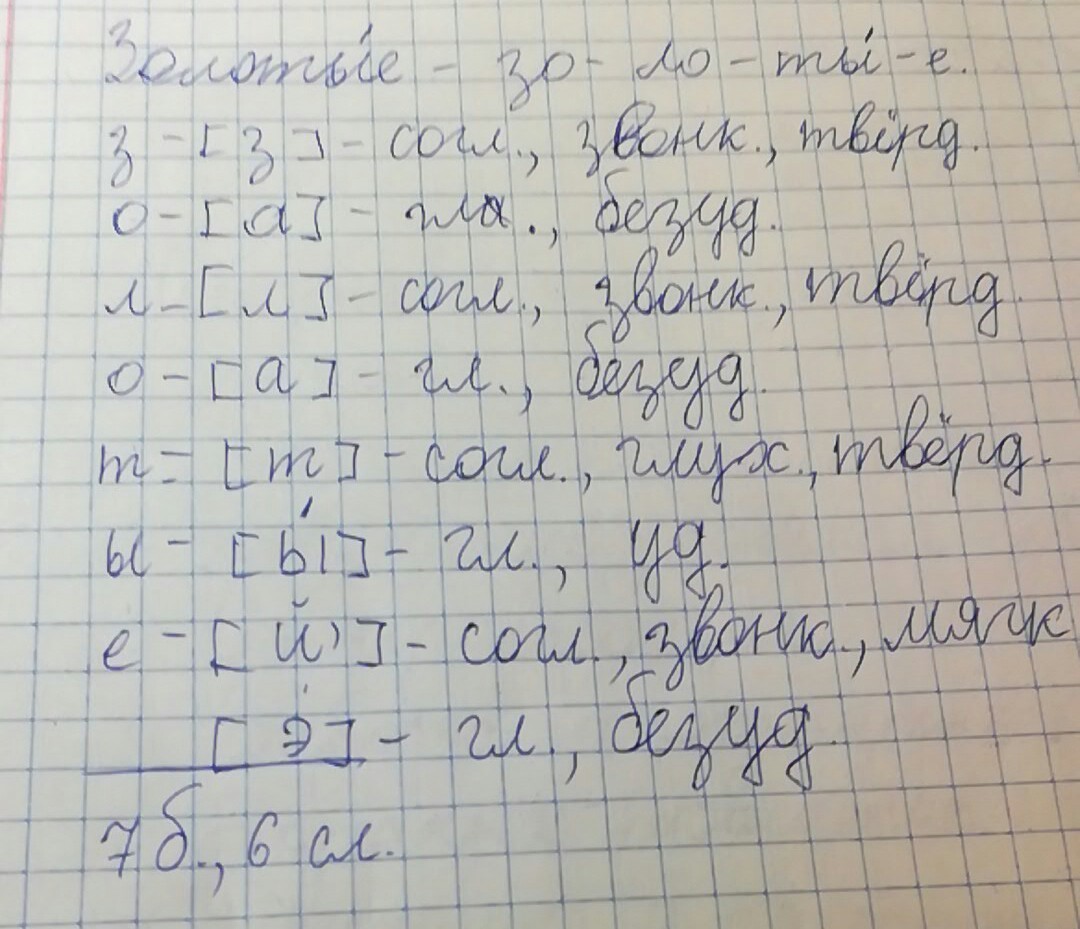 Золоты́е - зо-ло-ты́-е.
з-[з]-согл., звонк., твёрд.
о-[а]-гла., безуд.
л-[л]-согл., звонк., твёрд.
о-[а]-гл., безуд.
т=[т]-согл., глух., твёрд.
ы-[ы́]-гл., уд.
е-[й']-согл., звонк., мягк
[э]-гл, безуд.
7 б., 6 сл.